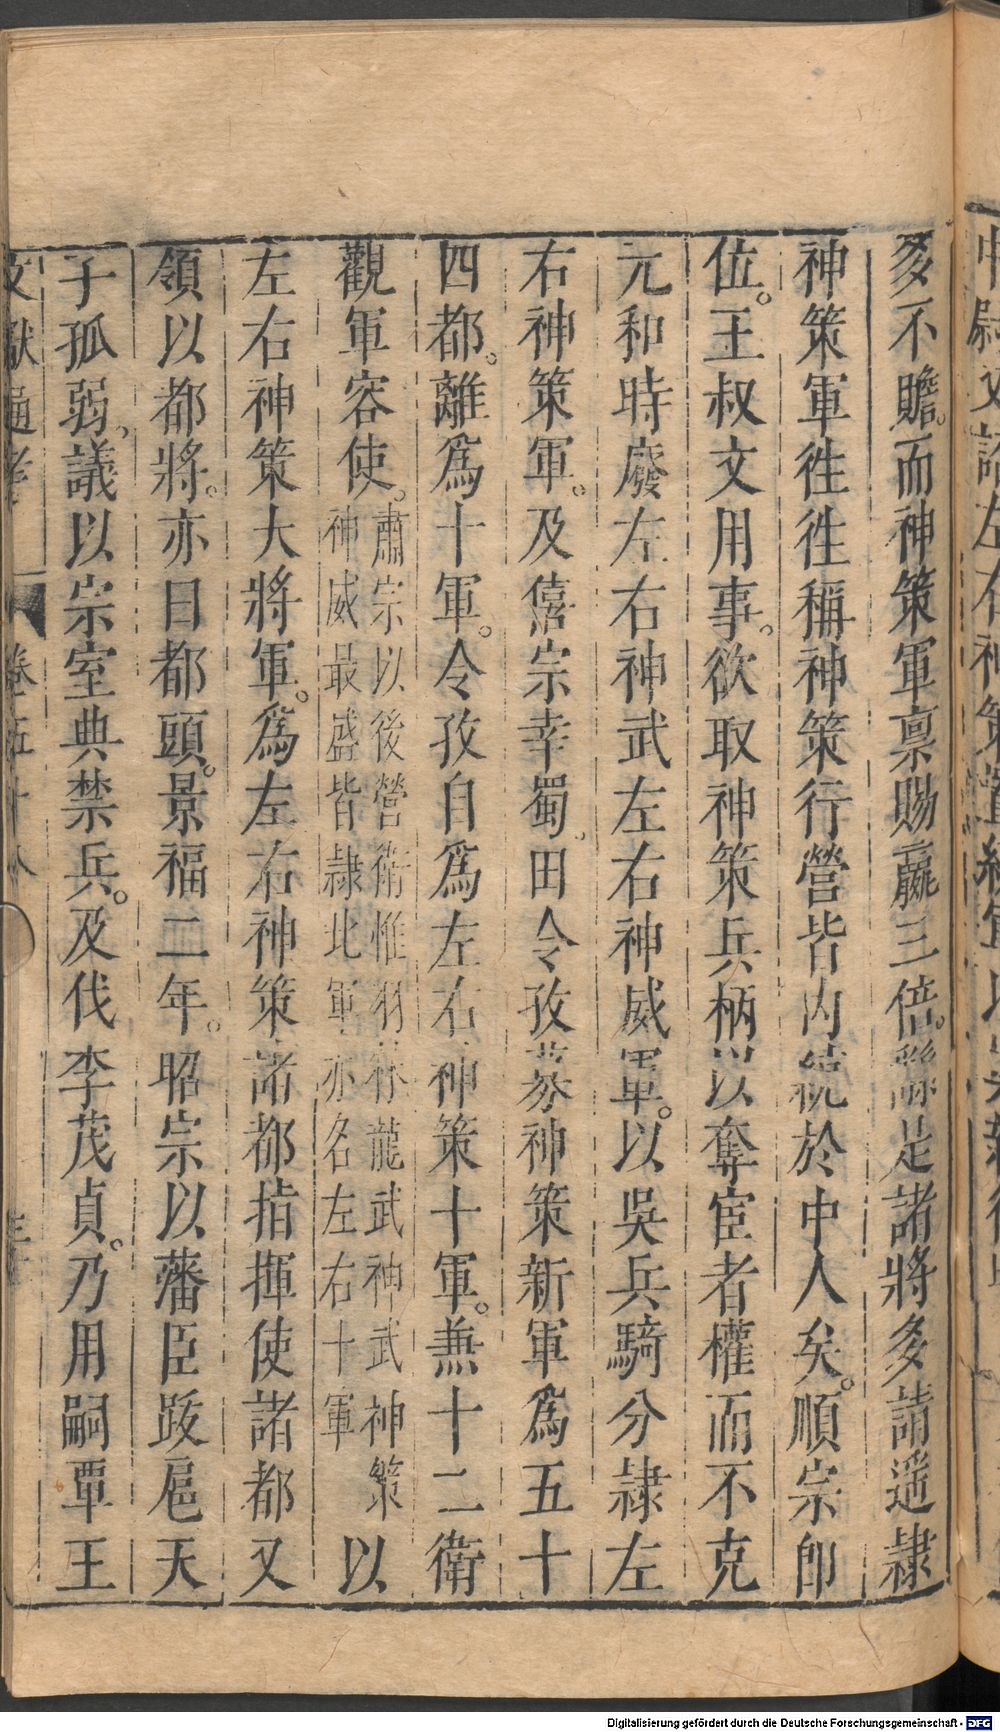 多不贍。而神策軍禀賜贏三倍。繇是諸將多請遥隷
神策軍徃徃稱神策行營皆内統於中人矣。順宗即
位。王叔文用事。欲取神策兵柄以奪宦者權而不克
元和時廢左右神武左右神威軍。以吳兵騎分隷左
右神策軍。及僖宗幸蜀。田令孜募神策新軍爲五十
四都。離爲十軍。令孜自爲左右神策十軍。兼十二衛
觀軍容使。肅宗以後營衛惟羽林龍武神武神策神威最盛皆隷北軍亦名左右十軍以
左右神策大將軍。爲左右神策諸都指揮使諸都又
領以都將。亦曰都頭。景福二年。昭宗以藩臣跋扈天
子孤弱。議以宗室典禁兵。及伐李茂貞。乃用嗣覃王
文獻通考 卷五十八
Digitalisierung gefördert durch die Deutsche Forschungsgemeinschaft - DFG